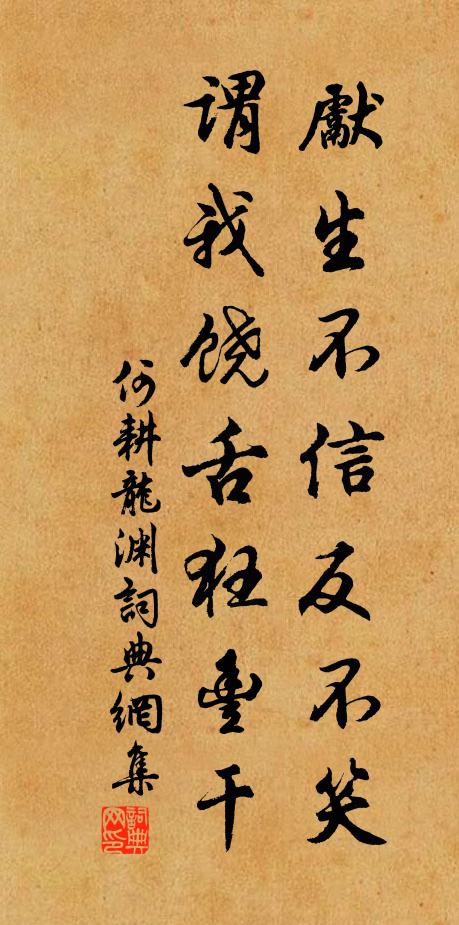 獻生不信反不笑
謂我饒舌狂豐干
何耕龍淵詞典網集
詞典
网印